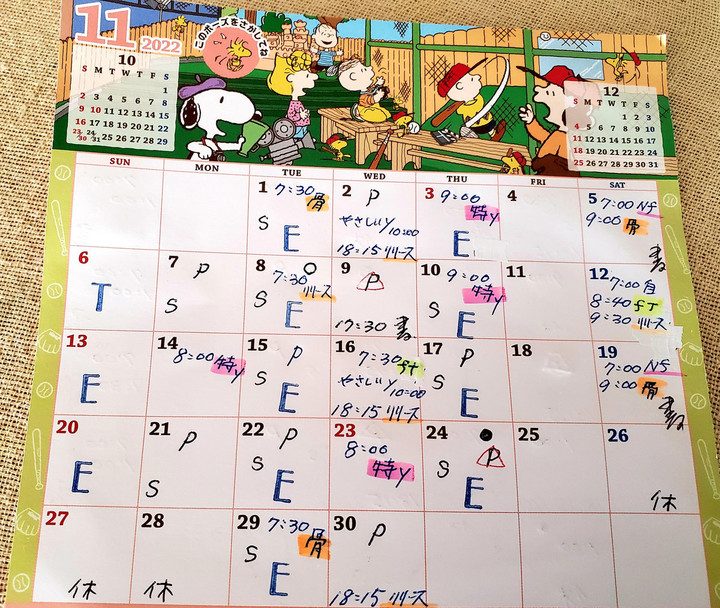 11
2022
このポーズをさがしてね
10
S M T W T F S
1
2 3 4 5 6 7 8
9 10 11 12 13 14 15
16 17 18 19 20 21 22
23 24 25 26 27 28 29
30 31
12
S M T W T F S
1 2 3
4 5 6 7 8 9 10
11 12 13 14 15 16 17
18 19 20 21 22 23 24
25 26 27 28 29 30 31
SUN MON TUE WED THU FRI SAT
1 7:30 骨
S E
2 P
やさしいY/10:00
18:15 リリース
3 9:00
特Y
E
4
5 7:00 Nf
9:00 骨
6
T
7 P
S
8
7:30 リリース
S E
9 P
17:30
10 9:00
特Y
S E
11
12 7:00 自
8:40 fT
9:30 リリース
13
E
14
8:00 特Y
15 P
S E
16 7:30 fT
やさしいY/10:00
18:15 リリース
17 P
S E
18
19
7:00 Nf
9:00 骨
20
E
21 P
S
22 P
S E
23
8:00
特Y
24
P
S E
25
26
休
27
休
28
休
29 7:30
骨
S E
30 P
18:15 リリース